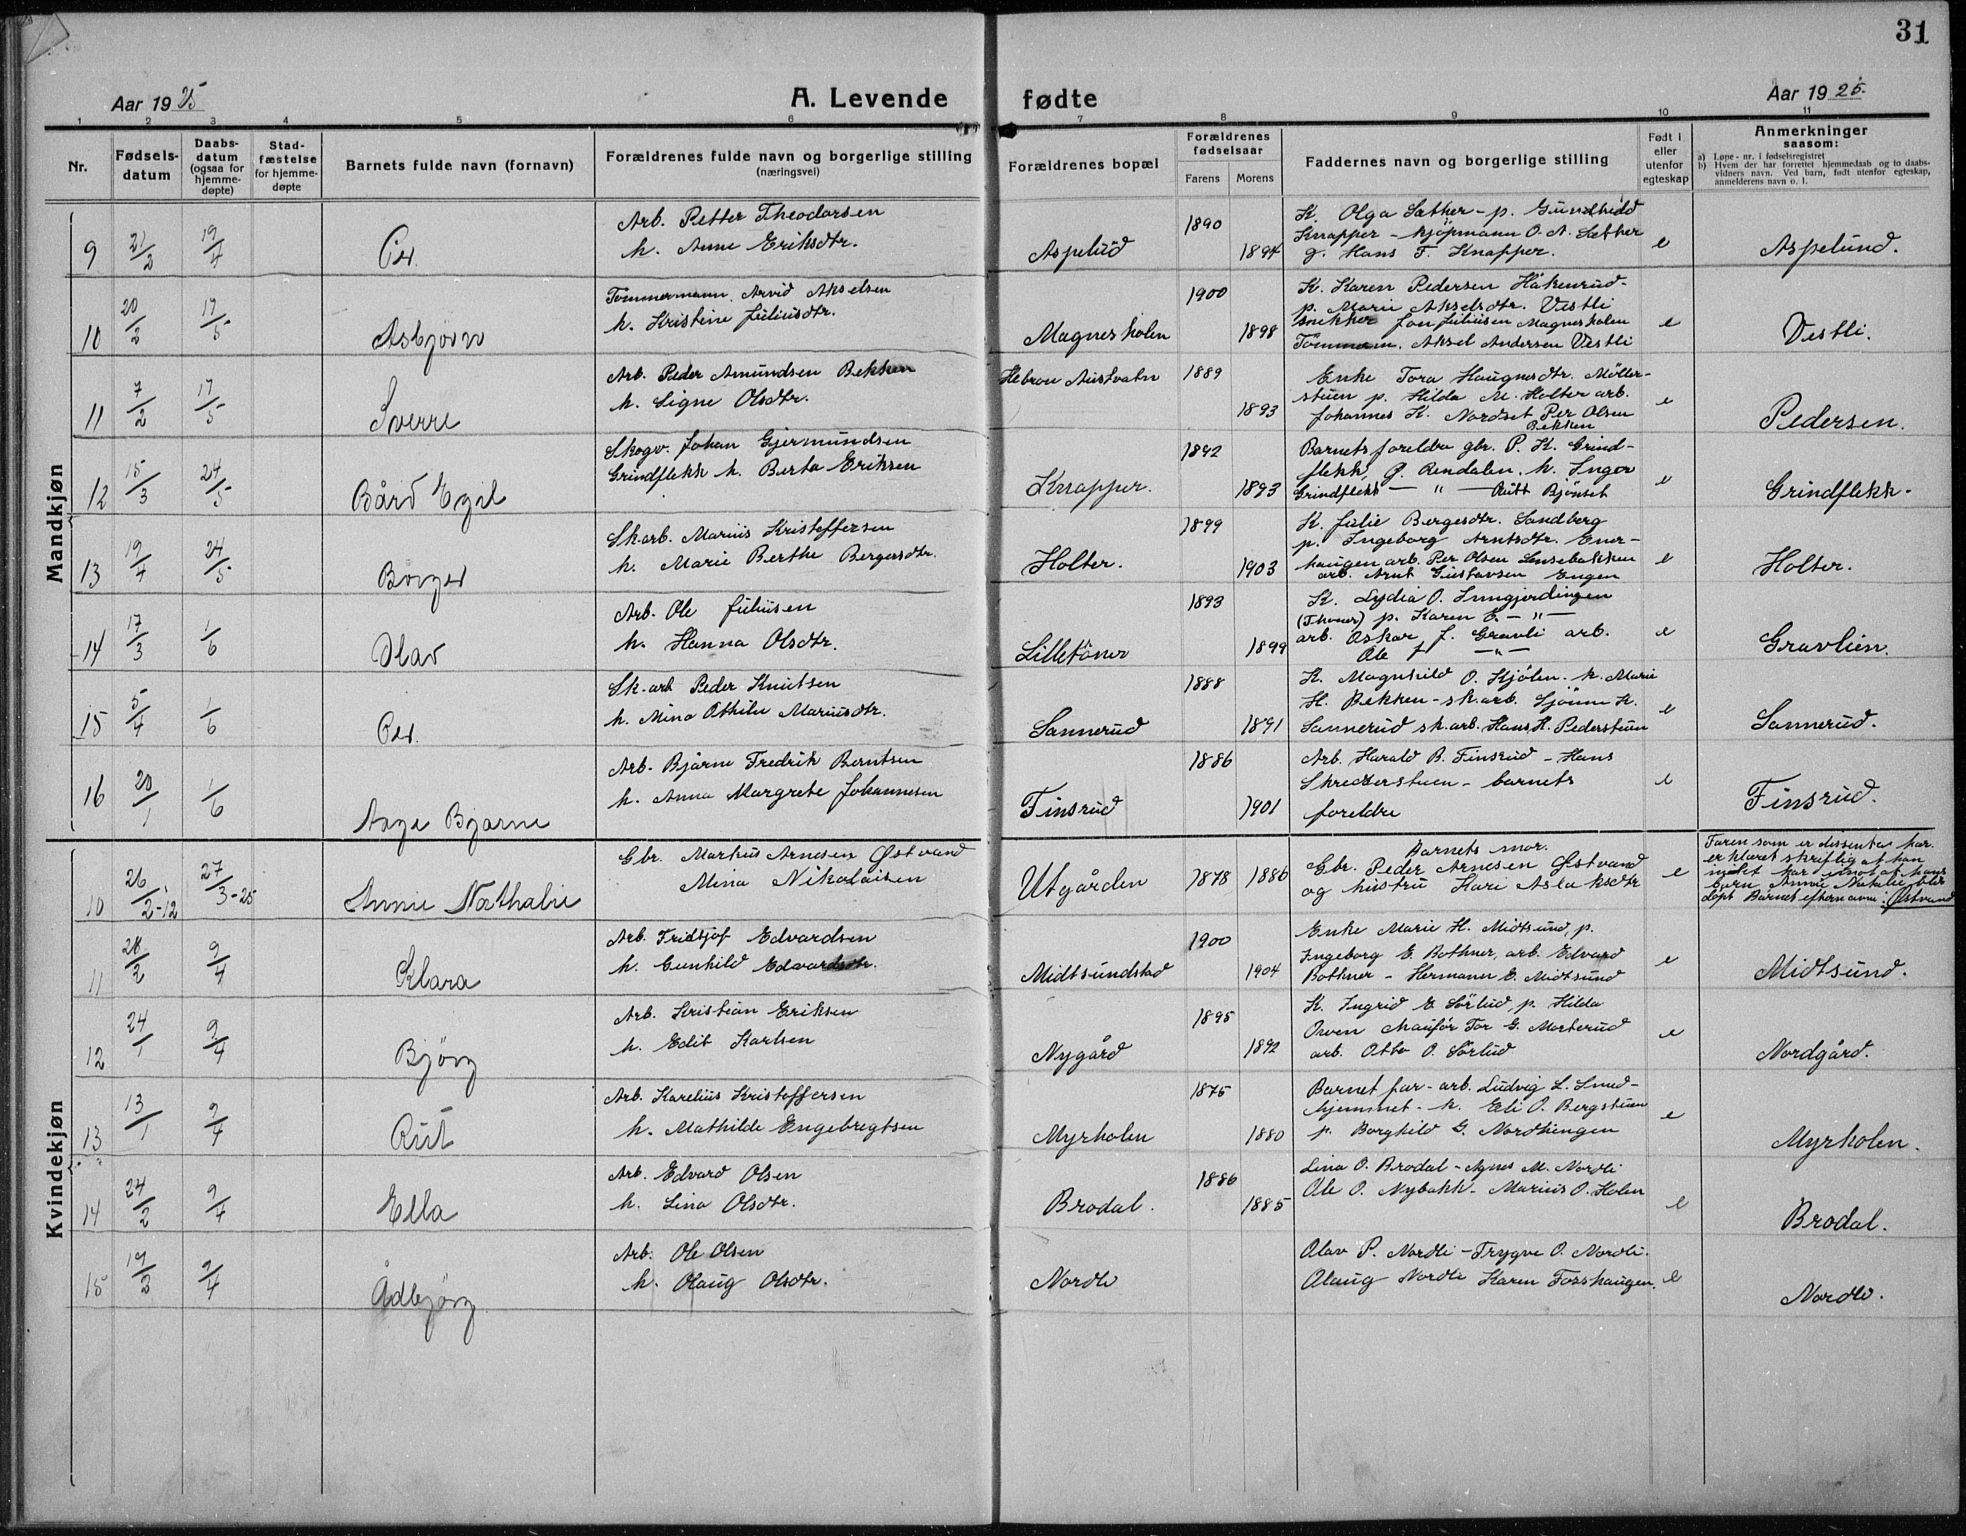 31
Aar 1925
A. Levende fødte
Aar 1925.
1 2 3 4 5 6 7 8 9 10 11
Nr.
Fødselsdatum
Daabsdatum (ogsaa for hjemmedøpte)
Stadfæstelse for hjemmedøpte
Barnets fulde navn (fornavn)
Forældrenes fulde navn og borgerlige stilling (næringsvei)
Forældrenes bopæl
Forældrenes fødselsaar
Farens Morens
Faddernes navn og borgerlige stilling
Født i eller utenfor egteskap
Anmerkninger saasom:
a) Løpe-nr. i fødselsregistret
b) Hvem der har forrettet hjemmedaab og to daabsvidners navn. Ved barn, født utenfor egteskap, anmelderens navn o. l.
Mandkjøn
9 21/2 19/4 Per.
Arb. Petter Theodorsen
h. Anne Eriksdtr.
Aspelud 1890 1894
K. Olga Sæther - p. Gundhild
Knapper - kjöpmann O. A. Sæther
g. Hans F. Knapper.
e Aspelund.
10 20/2 17/5 Asbjörn
Tömmermann. Arvid Akselsen
h. Kristine Juliusdtr.
Magnesholen 1900 1898
K. Karen Pedersen Håkenrud-
p. Marie Akselsdtr. Vestli
snekker Jon Juliusen Magnesholen
Tömmerm. Aksel Andersen Vestli
e Vestli.
11 7/2 17/5 Sverre
Arb. Peder Amundsen Bekken
h. Signe Olsdtr.
Hebron Austvatn 1889 1893
Enke Tora Haugnesdtr. Möller-
stuen p. Hilda M. Holter arb.
Johannes K. Nordset Per Olsen
Bekken
e Pedersen.
12 15/3 24/5 Bård Egil
Skogv. Johan Gjermundsen
Grindflekk h. Berta Eriksen
Knapper. 1892 1893
Barnets foreldre gbr. P. K. Grind-
flekk, G. Rendalen. h. Inger
Grindflekk — " — Rutt Bjönset
e Grindflekk.
13 19/4 24/5 Börger
Sk.arb. Marius Kristoffersen
h. Marie Berthe Bergersdtr.
Holter. 1899 1903
K. Julie Bergesdtr. Sandberg
p. Ingeborg Arntsdtr. Ener-
haugen arb. Per Olsen Lensebakken
arb. Arnt Gustavsen Engen
e Holter.
14 17/3 1/6 Olav
Arb. Ole Juliusen
h. Hanna Olsdtr.
Lilletöner 1893 1899
K. Lydia O.
p. Karen E. — " —
arb. Oskar J. Gravli arb.
Ole J — " —
e Gravlien.
15 5/4 1/6 Per.
Sk.arb Peder Knutsen
h. Mina Othilie Mariusdtr.
Sannerud 1888 1891
K. Magnhild O. Kjölen. h. Marie
H. Bekken - sk.arb. Sjönne K.
Sannerud sk.arb. Hans H. Pederstuen
e Sannerud.
16 20/1 1/6 Aage Bjarne
Arb. Bjarne Fredrik Berntsen
h. Anna Margrete Johannesen
Finsrud 1886 1901
Arb. Harald B. Finsrud - Hans
Skrederstuen - barnets
foreldre
e Finsrud.
Kvindekjøn
10 26/2-12 27/3-25 Annie Nathalie
Gbr. Markus Arnesen Østvand
Mina Nikolaisen
Utgården 1878 1886
Barnets mor.
Gbr. Peder Arnesen Østvand
og hustru Kari Aslaksdtr
e
Faren som er dissenter har
erklæret skriftlig at han
intet har imot at hans
barn Annie Natalie blir
döpt Barnet efternavn: Østvand
11 28/2 9/4 Klara
Arb. Fridtjof Edvardsen
h. Gunhild Edvardsdtr.
Midtsundstad 1900 1904
Enke Marie H. Midtsund, p.
Ingeborg E. Bothner, arb. Edvard
Bothner - Hermann E. Midtsund
e Midtsund.
12 24/1 9/4 Björg
Arb. Kristian Eriksen
h. Edit Karlsen
Nygård 1895 1892
K. Ingrid E. Sörlud, p. Hilda
Owen chauför Tor G. Morterud
arb. Otto O. Sörlud
e Nordgård.
13 13/1 9/4 Rut
Arb. Karelius Kristoffersen
h. Mathilde Engebregtsen
Myrholen 1875 1880
Barnet far - arb. Ludvig L. Smed-
hjemmet - h. Eli O. Bergstuen
p. Borghild G. Nordhingen
e Myrholen.
14 24/2 9/4 Ella
Arb. Edvard Olsen
h. Lina Olsdtr.
Brodal. 1886 1885
Lina O. Brodal - Agnes M. Nordli
Ole O. Nybakk - Marius O. Holen
e Brodal.
15 19/3 9/4 Ådbjörg
Arb. Ole Olsen
h. Olaug Olsdtr.
Nordli
Olav P. Nordli - Trygve O. Nordli.
Olaug Nordli Karen Torshaugen.
e Nordli.